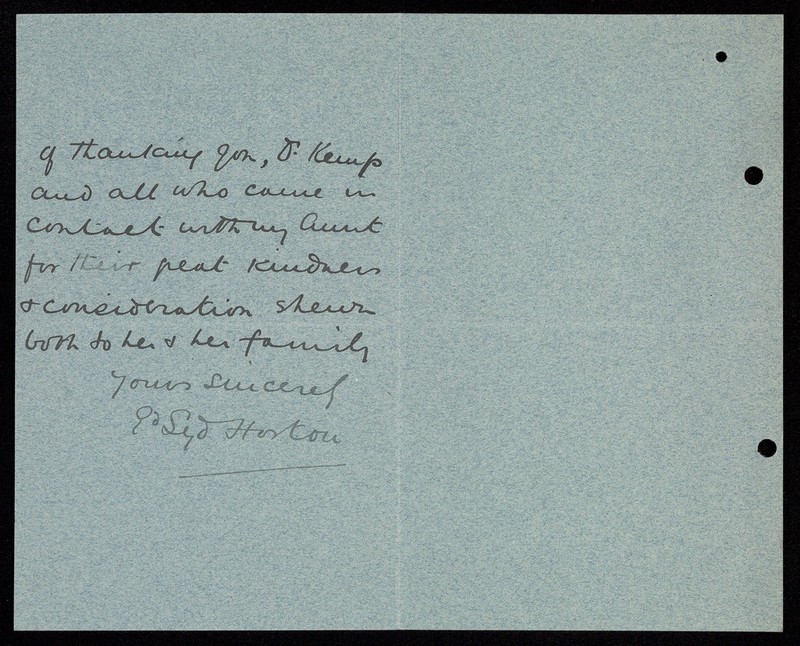 of thanking you, Dr. Kemp
and all who came in
contact with my Aunt
for their great kindness
& consideration shewn
both to her & her family
Yours sincerely
Syd Horton